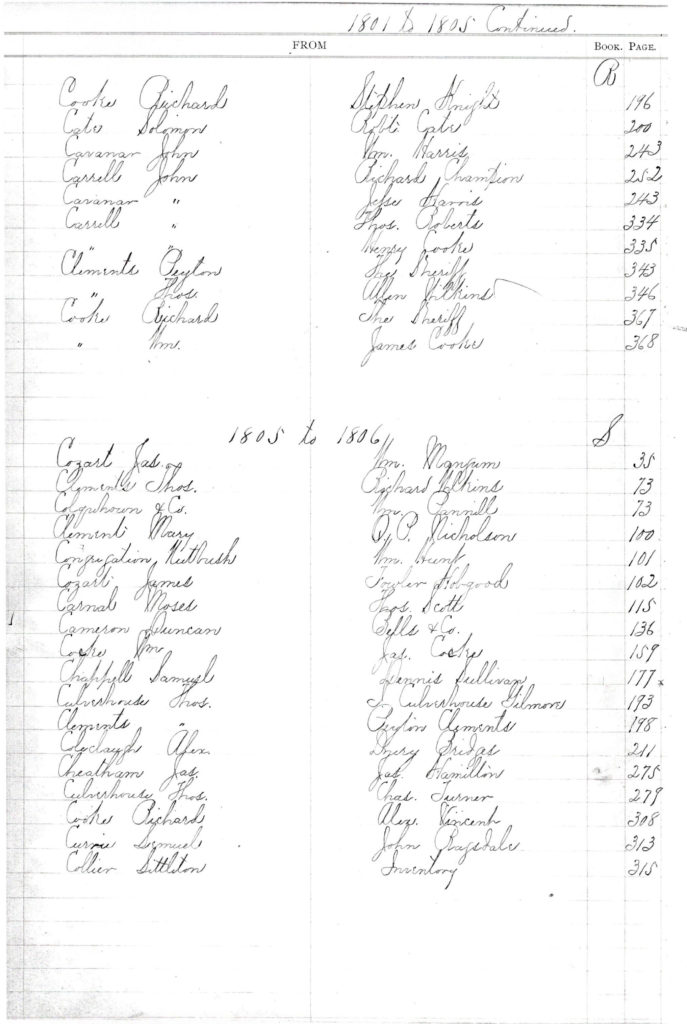 1801 to 1805 Continued.
FROM BOOK. PAGE.
R
Cooke Richard Stephen Knight 196
Cate Solomon Robt. Cate 200
Cavanar John Wm. Harris 243
Carrell John Richard Champion 252
Cavanar " Jesse Harris 243
Carrell " Thos. Roberts 334
" " Henry Cooke 335
Clements Peyton The Sheriff 343
" Thos. Allen Wilkins 346
Cooke Richard The Sheriff 367
" Wm. James Cooke 368
1805 to 1806 S
Cozart Jas. Wm. Mangum 35
Clements Thos. Richard Wilkins 73
Colquhoun & Co. Wm. Pannill 73
Clement Mary O. P. Nicholson 100
Congregation Nutbush Wm. Hunt 101
Cozart James Fowler Hobgood 102
Carnal Moses Thos. Scott 115
Cameron Duncan Bells & Co. 136
Cooke Wm Jas. Cooke 159
Chappell Samuel Dennis Sullivan 177
Culverhouse Thos. Culverhouse Gilmore 193
Clements " Peyton Clements 198
Coleclaugh Alex. Drury Bridges 211
Cheatham Jas. Jas. Hamilton 275
Culverhouse Thos. Chas. Turner 279
Cooke Richard Alex. Vincent 308
Currie Lemuel John Ragsdale 313
Collier Littleton Inventory 315